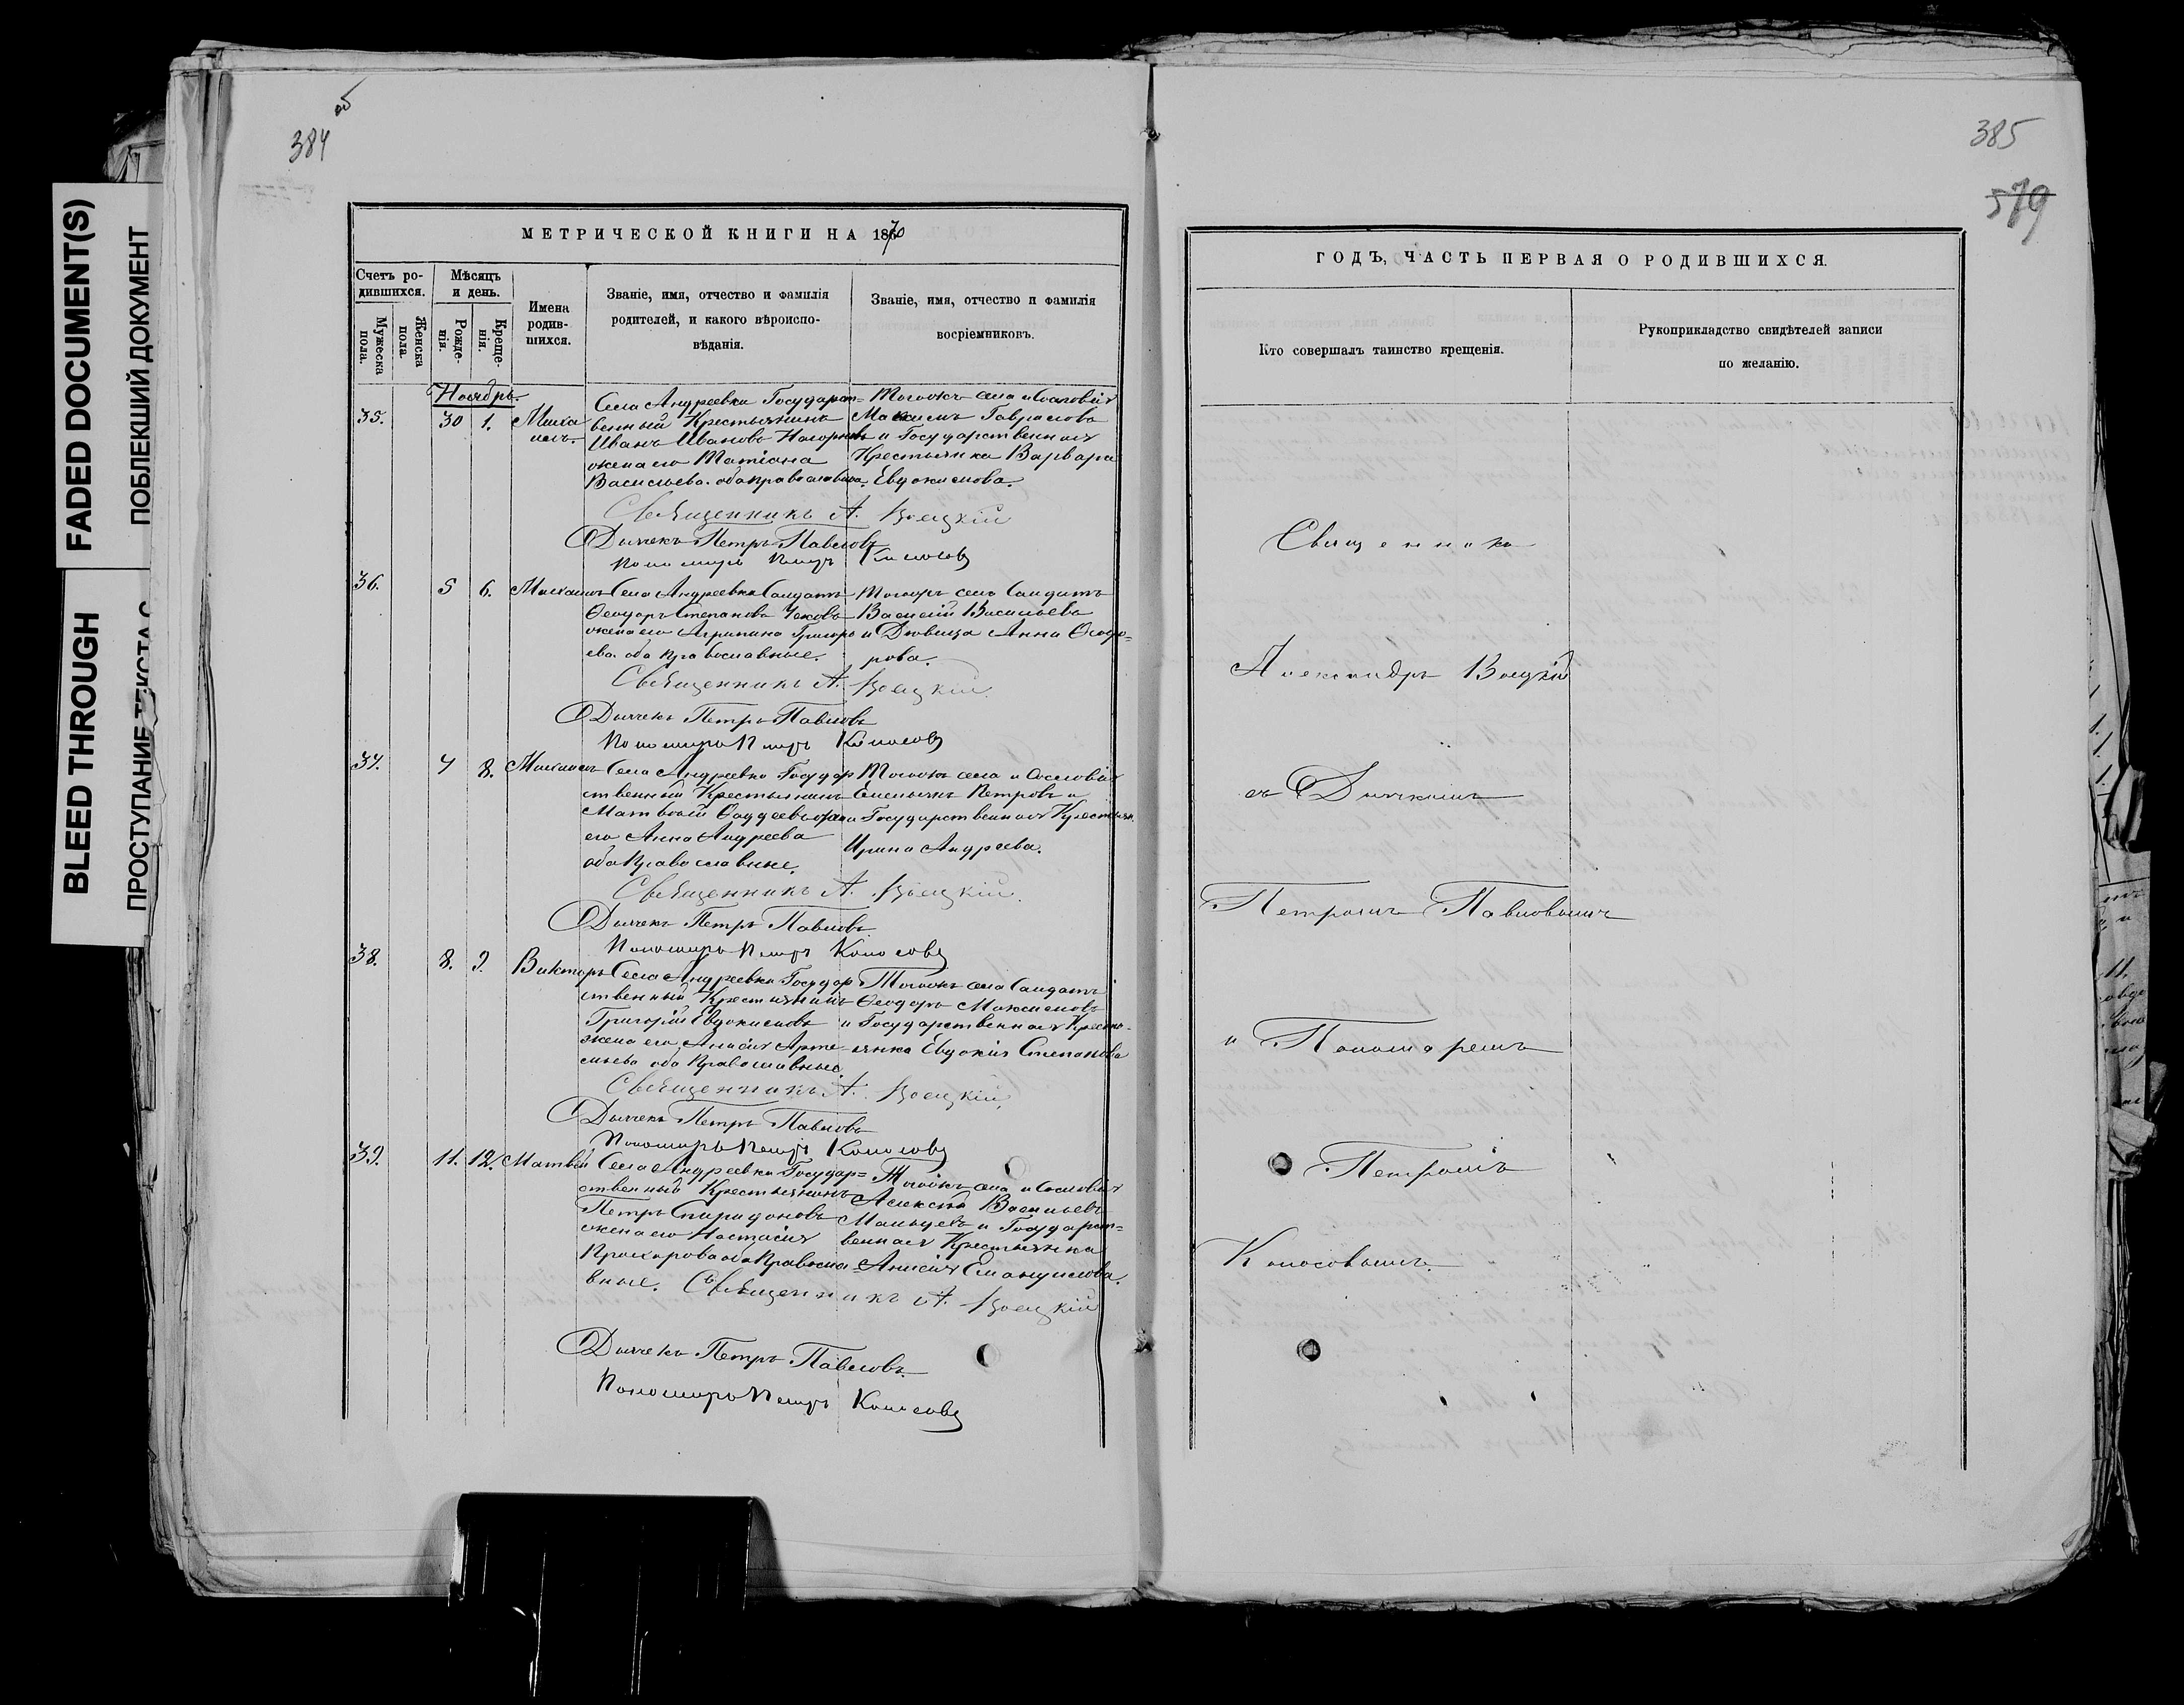 FADED DOCUMENT(S)
ПОБЛЕКШИЙ ДОКУМЕНТ
BLEED THROUGH
ПРОСТУПАНИЕ ТЕКСТА С
384 об
385
579
МЕТРИЧЕСКОЙ КНИГИ НА 1870
Счетъ ро-
дившихся.
Мужеска пола.
Женска пола.
Мѣсяцъ и день.
Рожде-
нія.
Креще-
нія.
Имена
родив-
шихся.
Званіе, имя, отчество и фамилія
родителей, и какого вѣроиспо-
вѣданія.
Званіе, имя, отчество и фамилія
воспріемниковъ.
Ноябрь.
35. 30 1. Миха
илъ.
Села Андреевки Государст=
венный Крестьянинъ
Иванъ Ивановъ
жена его Татіана
Васильева. оба православные
Тогожъ села и сословія
Максимъ Гавриловъ
и Государственная
Крестьянка Варвара
Евдокимова.
Священникъ А. Воецкій
Дьячекъ Петръ Павловъ
Пономарь Петръ Колосовъ
36. 5 6. Михаилъ
Села Андреевки Солдатъ
Ѳеодоръ Степановъ
жена его Агрипина Григорь
ева. оба православные.
Тогожъ села Солдатъ
Василій Васильевъ
и Дѣвица Анна Ѳеодо=
рова.
Священникъ А. Воецкій.
Дьячекъ Петръ Павловъ
Пономарь Петръ Колосовъ
37. 7 8. Михаилъ
Села Андреевки Государ
ственный Крестьянинъ
Матвѣй Ѳаддеевъ жена
его Анна Андреева
оба Православные.
Тогожъ села и сословія
Емельянъ Петровъ и
Государственная Крестьян.
Ирина Андреева.
Священникъ А. Воецкій.
Дьячекъ Петръ Павловъ
Пономарь Петръ Колосовъ
38. 8. 9. Викторъ
Села Андреевки Государ
ственный Крестьянинъ
Григорій Евдокимовъ
жена его Анисія Арте
мьева оба Православные.
Тогожъ села Солдатъ
Ѳеодоръ Максимовъ
и Государственная Кресть-
янка Евдокія Степанова
Священникъ А. Воецкій.
Дьячекъ Петръ Павловъ
Пономарь Петръ Колосовъ
39. 11. 12. Матвѣй
Села Андреевки Государ=
ственный Крестьянинъ
Петръ Спиридоновъ
жена его Настасія
Прохорова оба Правосла=
вные.
Тогожъ села и сословія
Алексѣй Васильевъ
Мальцевъ и Государст=
венная Крестьянка
Анисія Емануилова.
Священникъ А. Воецкій
Дьячекъ Петръ Павловъ.
Пономарь Петръ Колосовъ
ГОДЪ, ЧАСТЬ ПЕРВАЯ О РОДИВШИХСЯ.
Кто совершалъ таинство крещенія.
Рукоприкладство свидѣтелей записи
по желанію.
Священникъ
Александръ Воецкій
съ Дьячкомъ
Петромъ Павловымъ
и Пономаремъ
Петромъ
Колосовымъ.